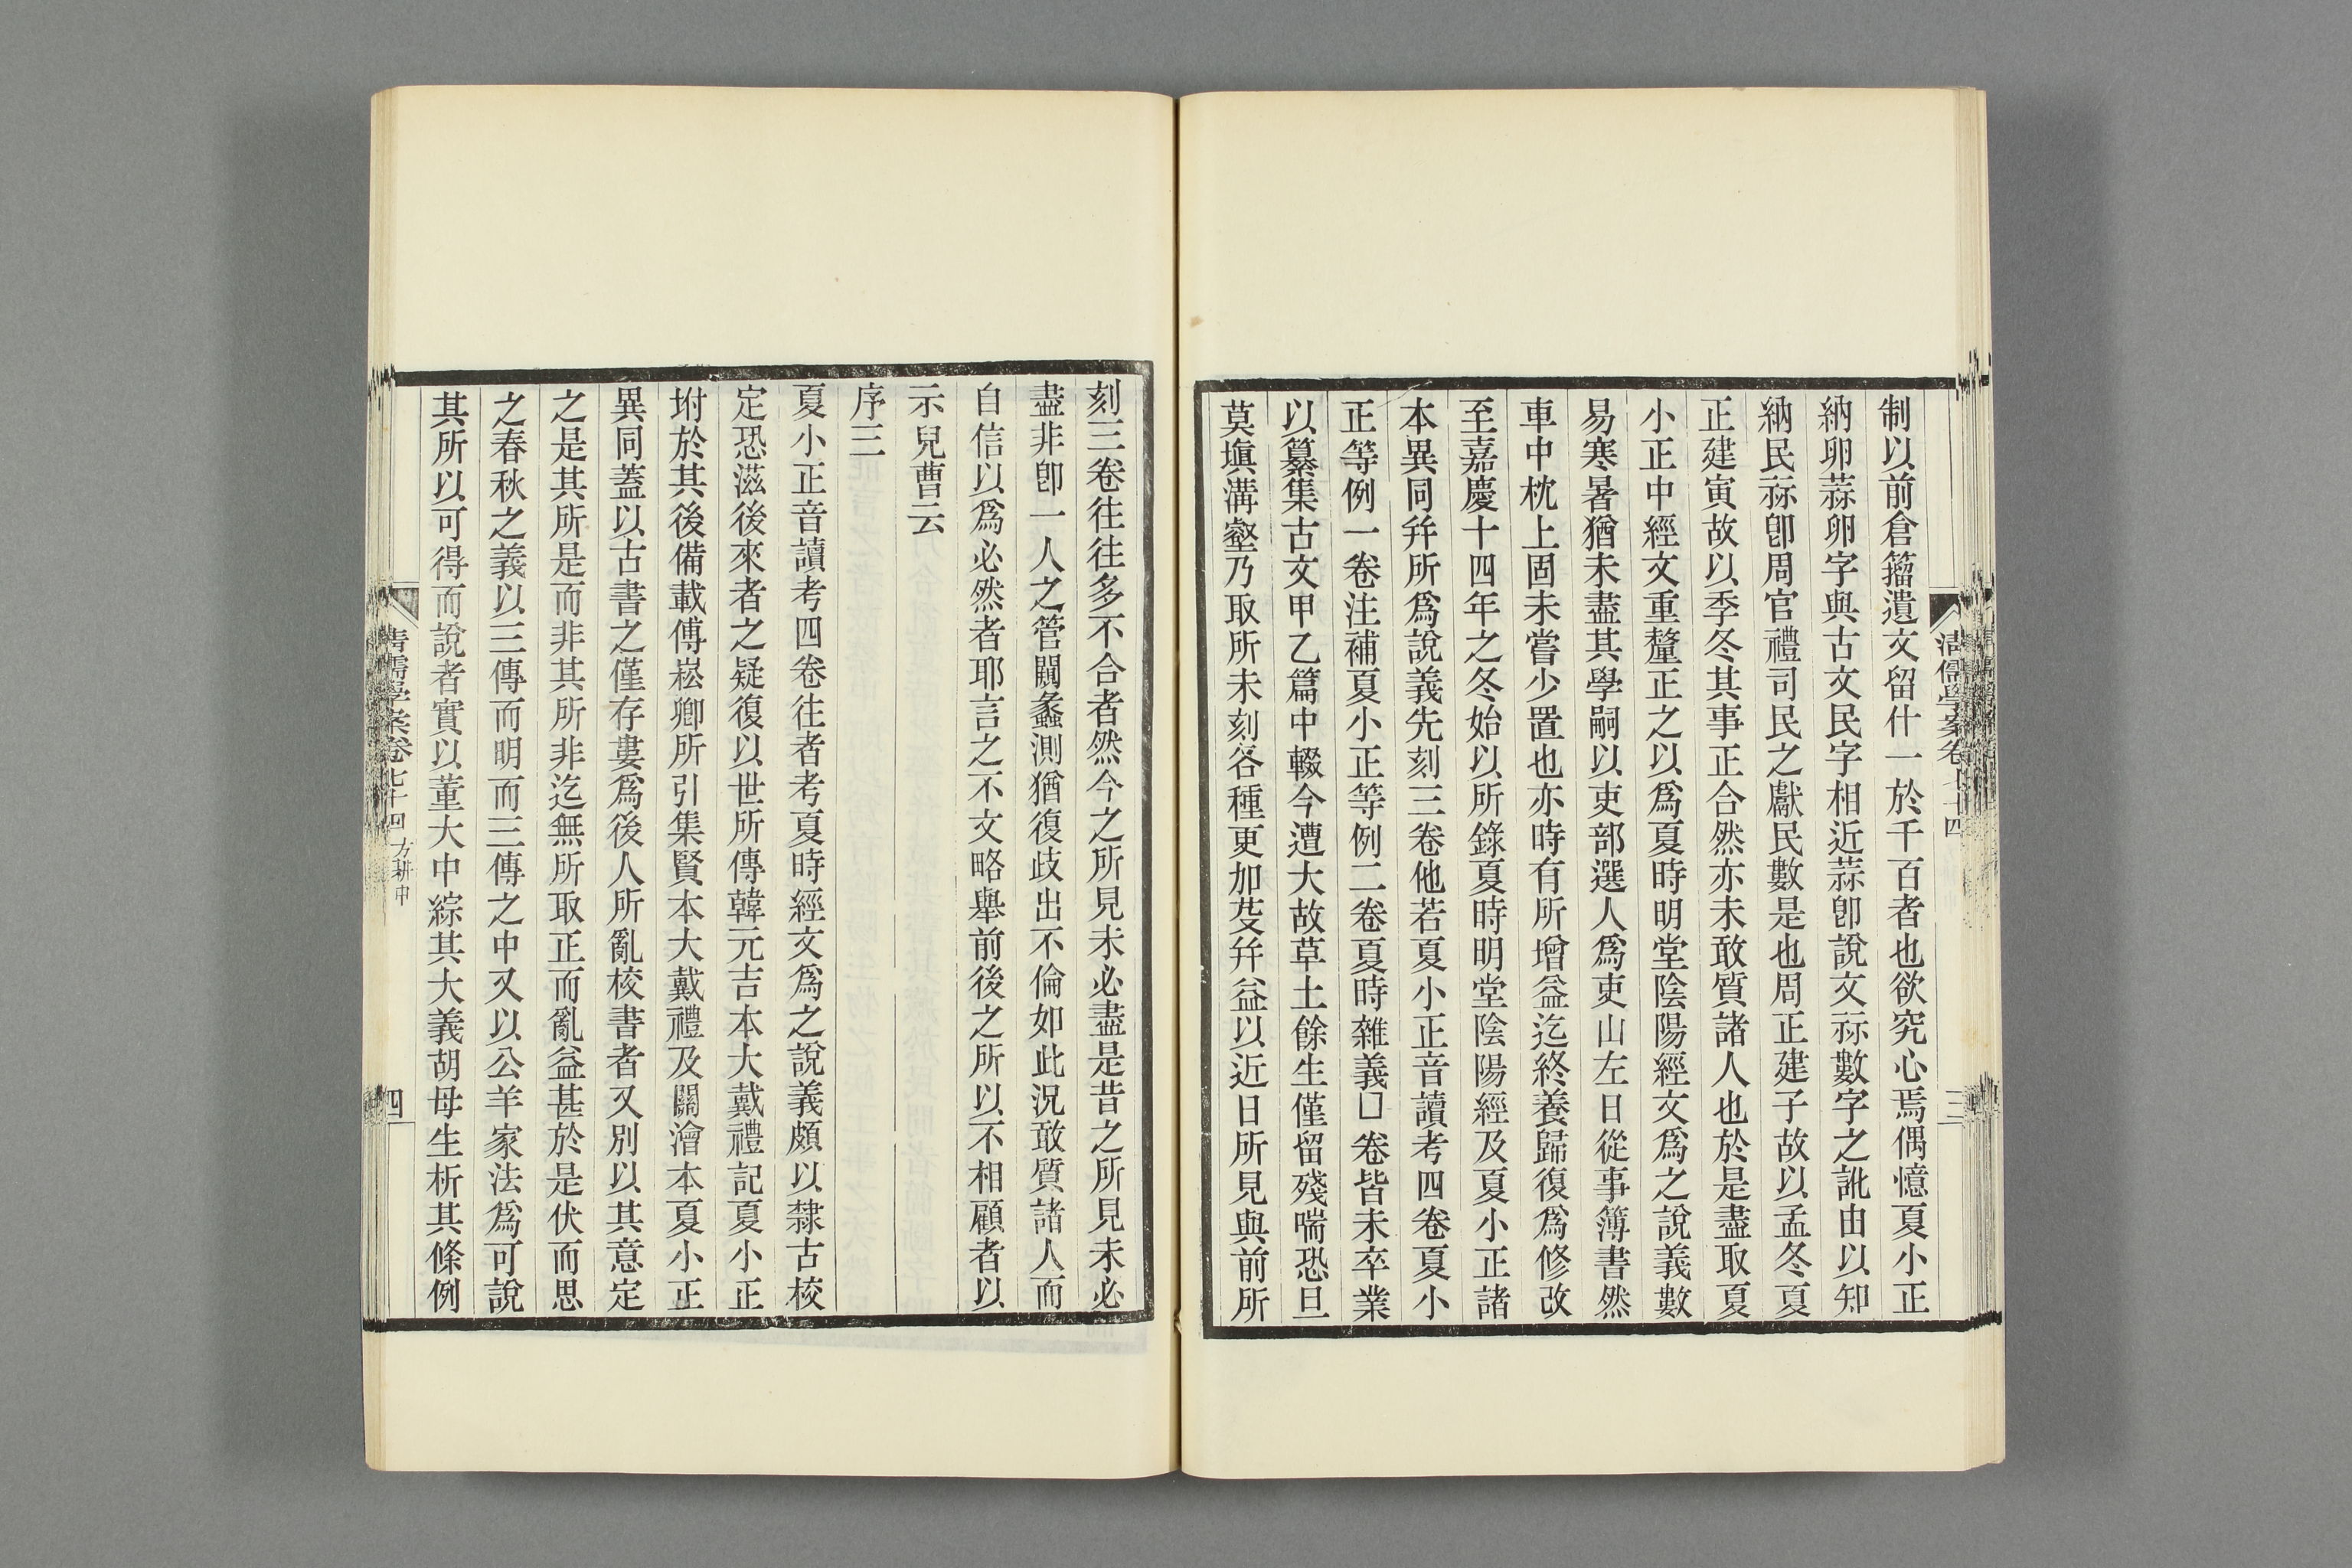 制以前倉籀遺文留什一於千百者也欲究心焉偶憶夏小正
納卵蒜卵字與古文民字相近蒜卽說文祘數字之訛由以知
納民祘卽周官禮司民之獻民數是也周正建子故以孟冬夏
正建寅故以季冬其事正合然亦未敢質諸人也於是盡取夏
小正中經文重釐正之以爲夏時明堂陰陽經文爲之說義數
易寒暑猶未盡其學嗣以吏部選人爲吏山左日從事簿書然
車中枕上固未嘗少置也亦時有所增益迄終養歸復爲修改
至嘉慶十四年之冬始以所錄夏時明堂陰陽經及夏小正諸
本異同幷所爲說義先刻三卷他若夏小正音讀考四卷夏小
正等例一卷注補夏小正等例二卷夏時雜義囗卷皆未卒業
以纂集古文甲乙篇中輟今遭大故草土餘生僅留殘喘恐旦
莫塡溝壑乃取所未刻各種更加芟幷益以近日所見與前所
刻三卷往往多不合者然今之所見未必盡是昔之所見未必
盡非卽一人之管闚蠡測猶復歧出不倫如此況敢質諸人而
自信以爲必然者耶言之不文略舉前後之所以不相顧者以
示兒曹云
序三
夏小正音讀考四卷往者考夏時經文爲之說義頗以隸古校
定恐滋後來者之疑復以世所傳韓元吉本大戴禮記夏小正
坿於其後備載傅崧卿所引集賢本大戴禮及關澮本夏小正
異同蓋以古書之僅存婁爲後人所亂校書者又別以其意定
之是其所是而非其所非迄無所取正而亂益甚於是伏而思
之春秋之義以三傳而明而三傳之中又以公羊家法爲可說
其所以可得而說者實以董大中綜其大義胡母生析其條例
清儒學案卷七十四 方耕中
四